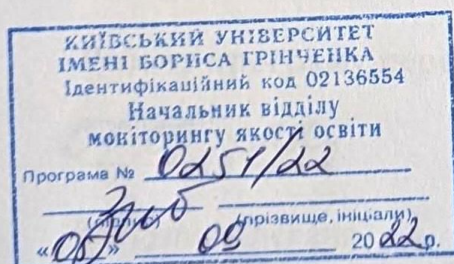 КИЇВСЬКИЙ УНІВЕРСИТЕТ
ІМЕНІ БОРИСА ГРІНЧЕНКА
Ідентифікаційний код 02136554
Начальник відділу
моніторингу якості освіти
Програма № 0251/22
(підпис) (прізвище, ініціали)
« » 09 2022 р.